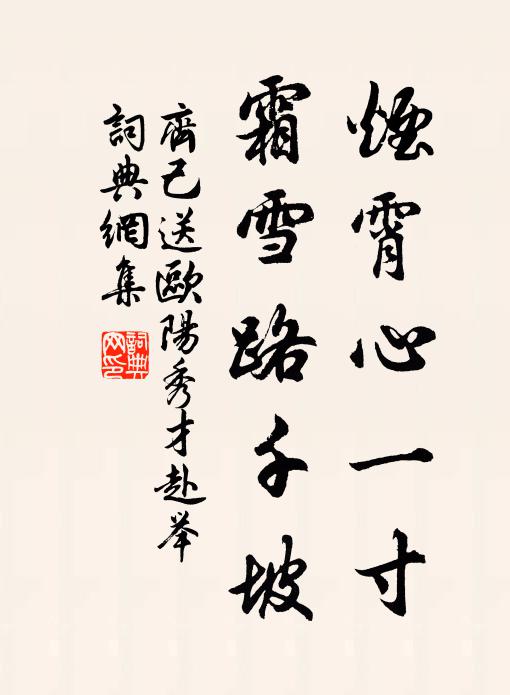 煙霄心一寸
霜雪路千坡
齊己送歐陽秀才赴举
詞典網集
詞典
网印